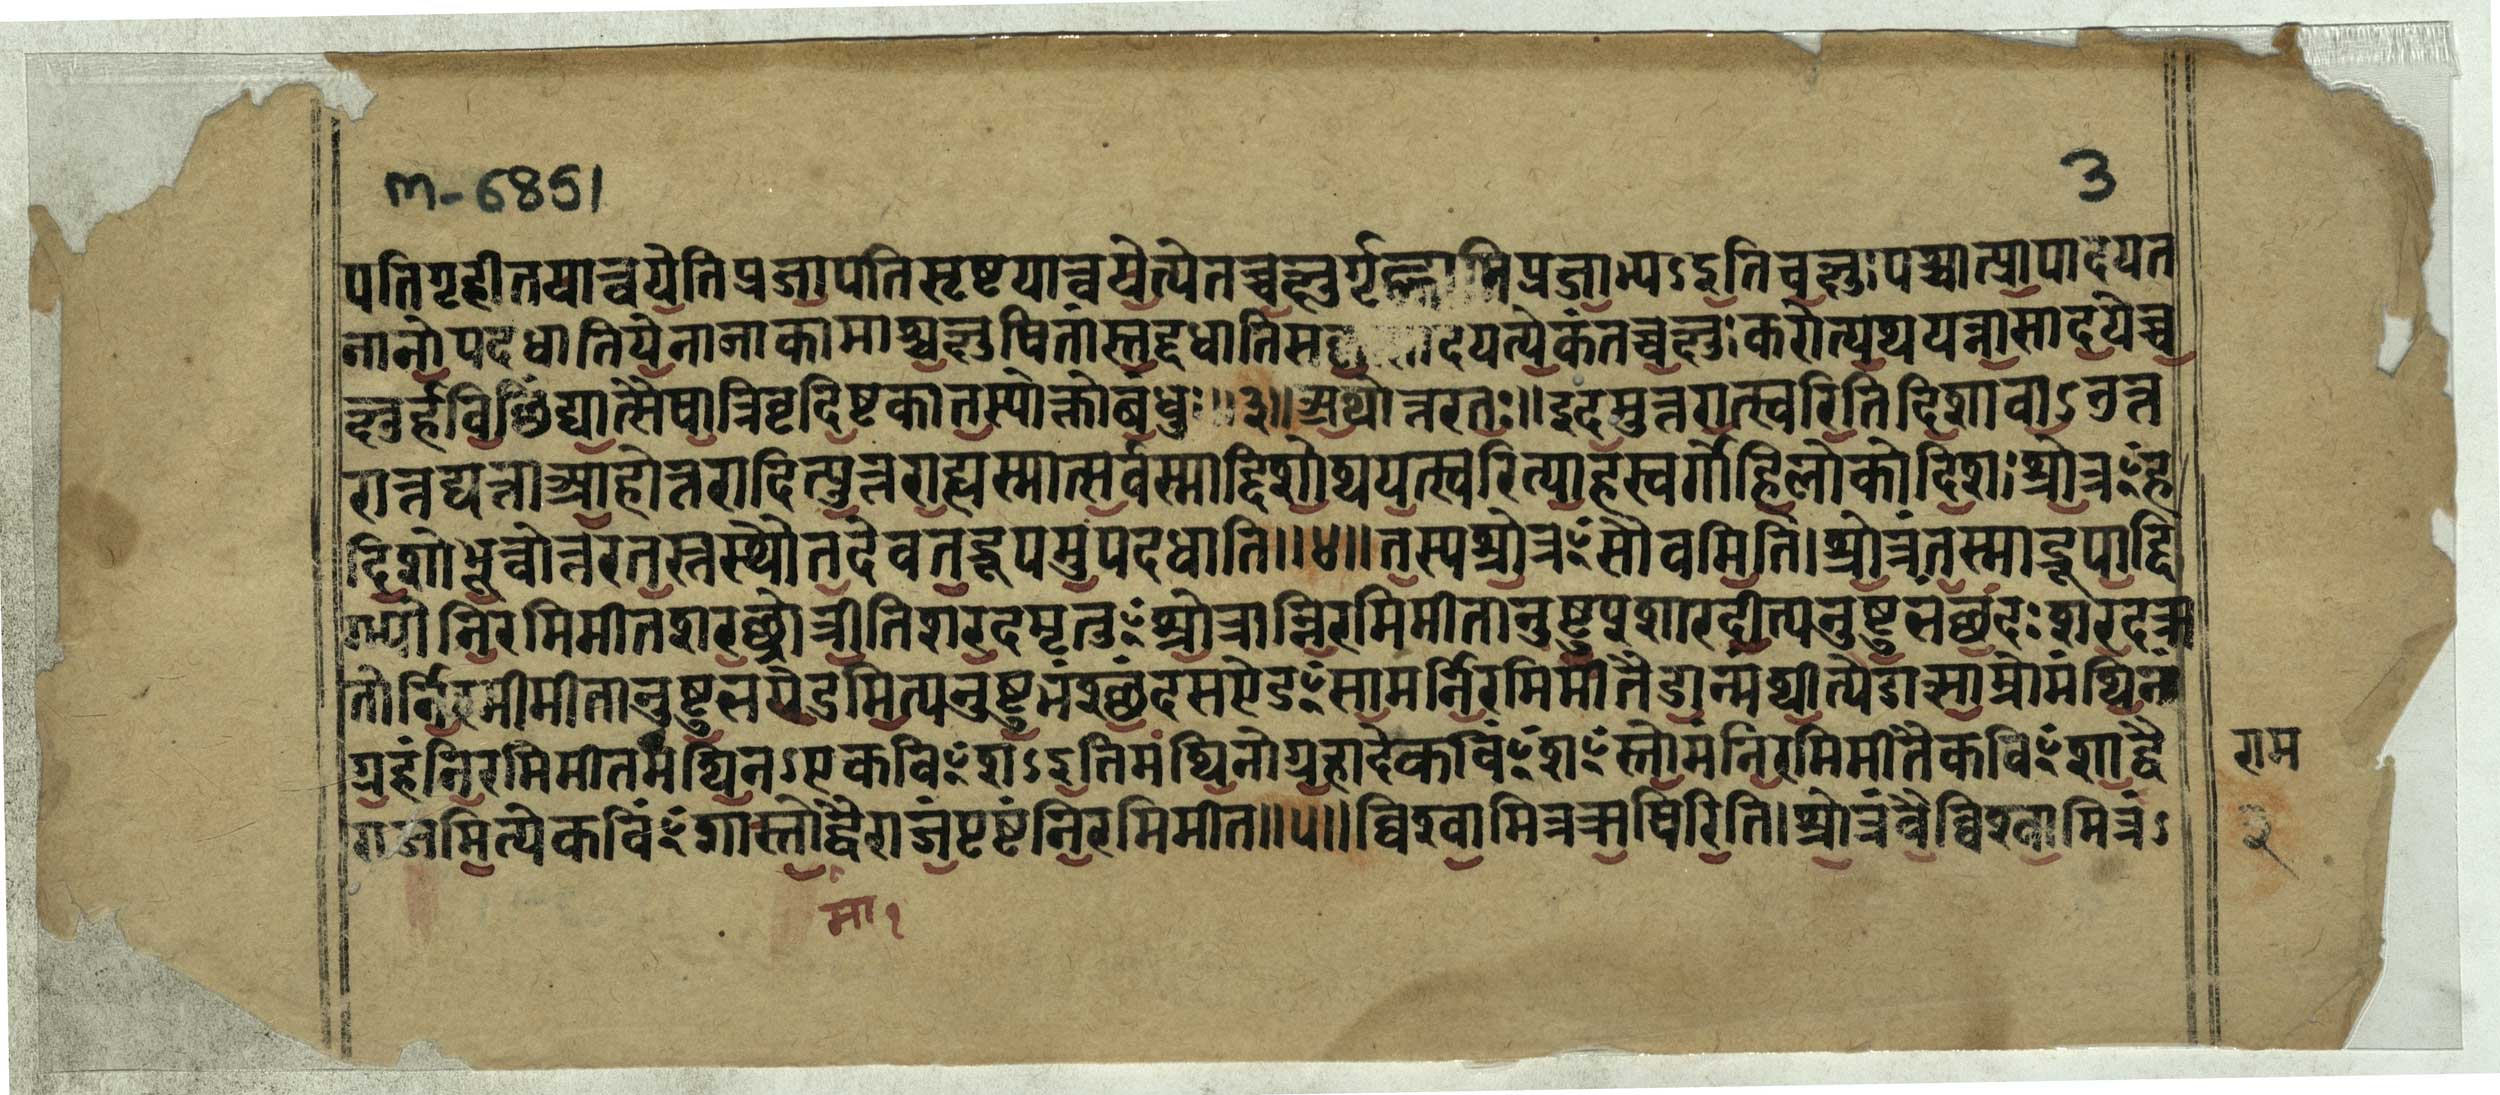 m-6851
3
पतिगृहीतयात्वयेतिप्रजापतिसृष्टयात्वयेत्येतच्चक्षुर्गृह्णामिप्रजाभ्यऽइतिचक्षुःपश्चात्प्रापादयत
नानोपदधातियेनानाकामाश्चक्षुषितांस्तद्दधातिसकृत्सादयत्येकंतच्चक्षुःकरोत्यथयन्नानासादयेच्च
क्षुर्हविछिंद्यात्सैषात्रिवृदिष्टकातस्योक्तोबंधुः॥३॥अथोत्तरतः॥इदमुत्तरात्स्वरितिदिशोवाऽउत्त
रात्तद्यत्ताआहोत्तरादित्युत्तराह्यस्मात्सर्वस्माद्दिशोथयत्स्वरित्याहस्वर्गोहिलोकोदिशःश्रोत्रꣳह
दिशोभूत्वोत्तरतस्तस्थौतदेवतद्रूपमुपदधाति॥४॥तस्यश्रोत्रꣳसौवमिति।श्रोत्रंतस्माद्रूपाद्दि
ग्भ्योनिरमिमीतशरच्छ्रौत्रीतिशरदमृतुꣳश्रोत्रान्निरमिमीतानुष्टुप्शारदीत्यनुष्टुभंछंदःशरदऋ
तोर्निरमीमीतानुष्टुभऐडमित्यनुष्टुभश्छंदसऐडꣳसामनिरमिमीतैडान्मंथीत्यैडात्साम्नोमंथिनं
ग्रहंनिरमिमीतमंथिनऽएकविꣳशऽइतिमंथिनोग्रहादेकविंꣳशꣳस्तोमंनिरमिमीतैकविꣳशाद्वै
राम
राजमित्येकविंꣳशास्तोद्वैराजंपृष्टंनिरमिमीत॥५॥विश्वामित्रऋषिरिति।श्रोत्रंवैविश्वामित्रंऽ
२
मा१